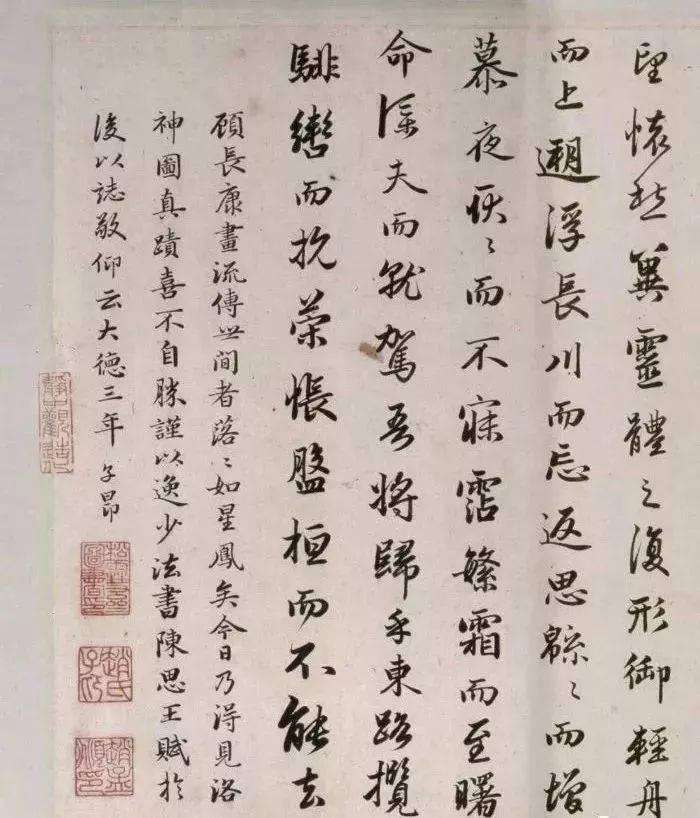 望懷愁冀靈體之復形御輕舟
而上遡浮長川而忘返思緜〻而增
慕夜耿〻而不寐霑繁霜而至曙
命僕夫而就駕吾將歸乎東路攬
騑轡而抗策悵盤桓而不能去
顧長康畫流傳世間者落〻如星鳳矣今日乃得見洛
神圖真蹟喜不自勝謹以逸少法書陳思王賦於
後以誌敬仰云大德三年 子昂
靜中觀造
趙氏子昂